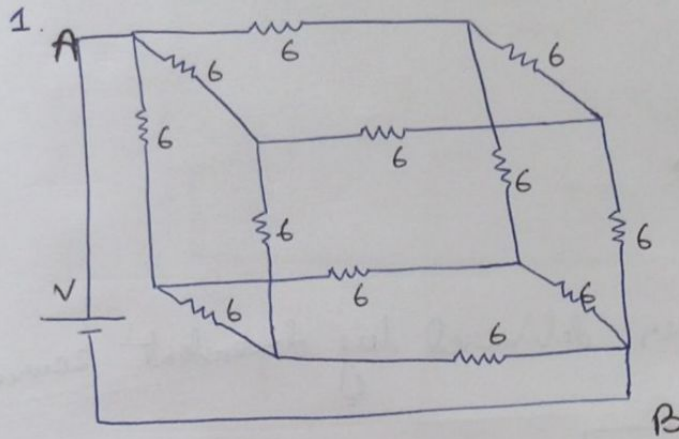 1.
A
6
6
6
6
6
6
6
6
V
6
6
6
6
B